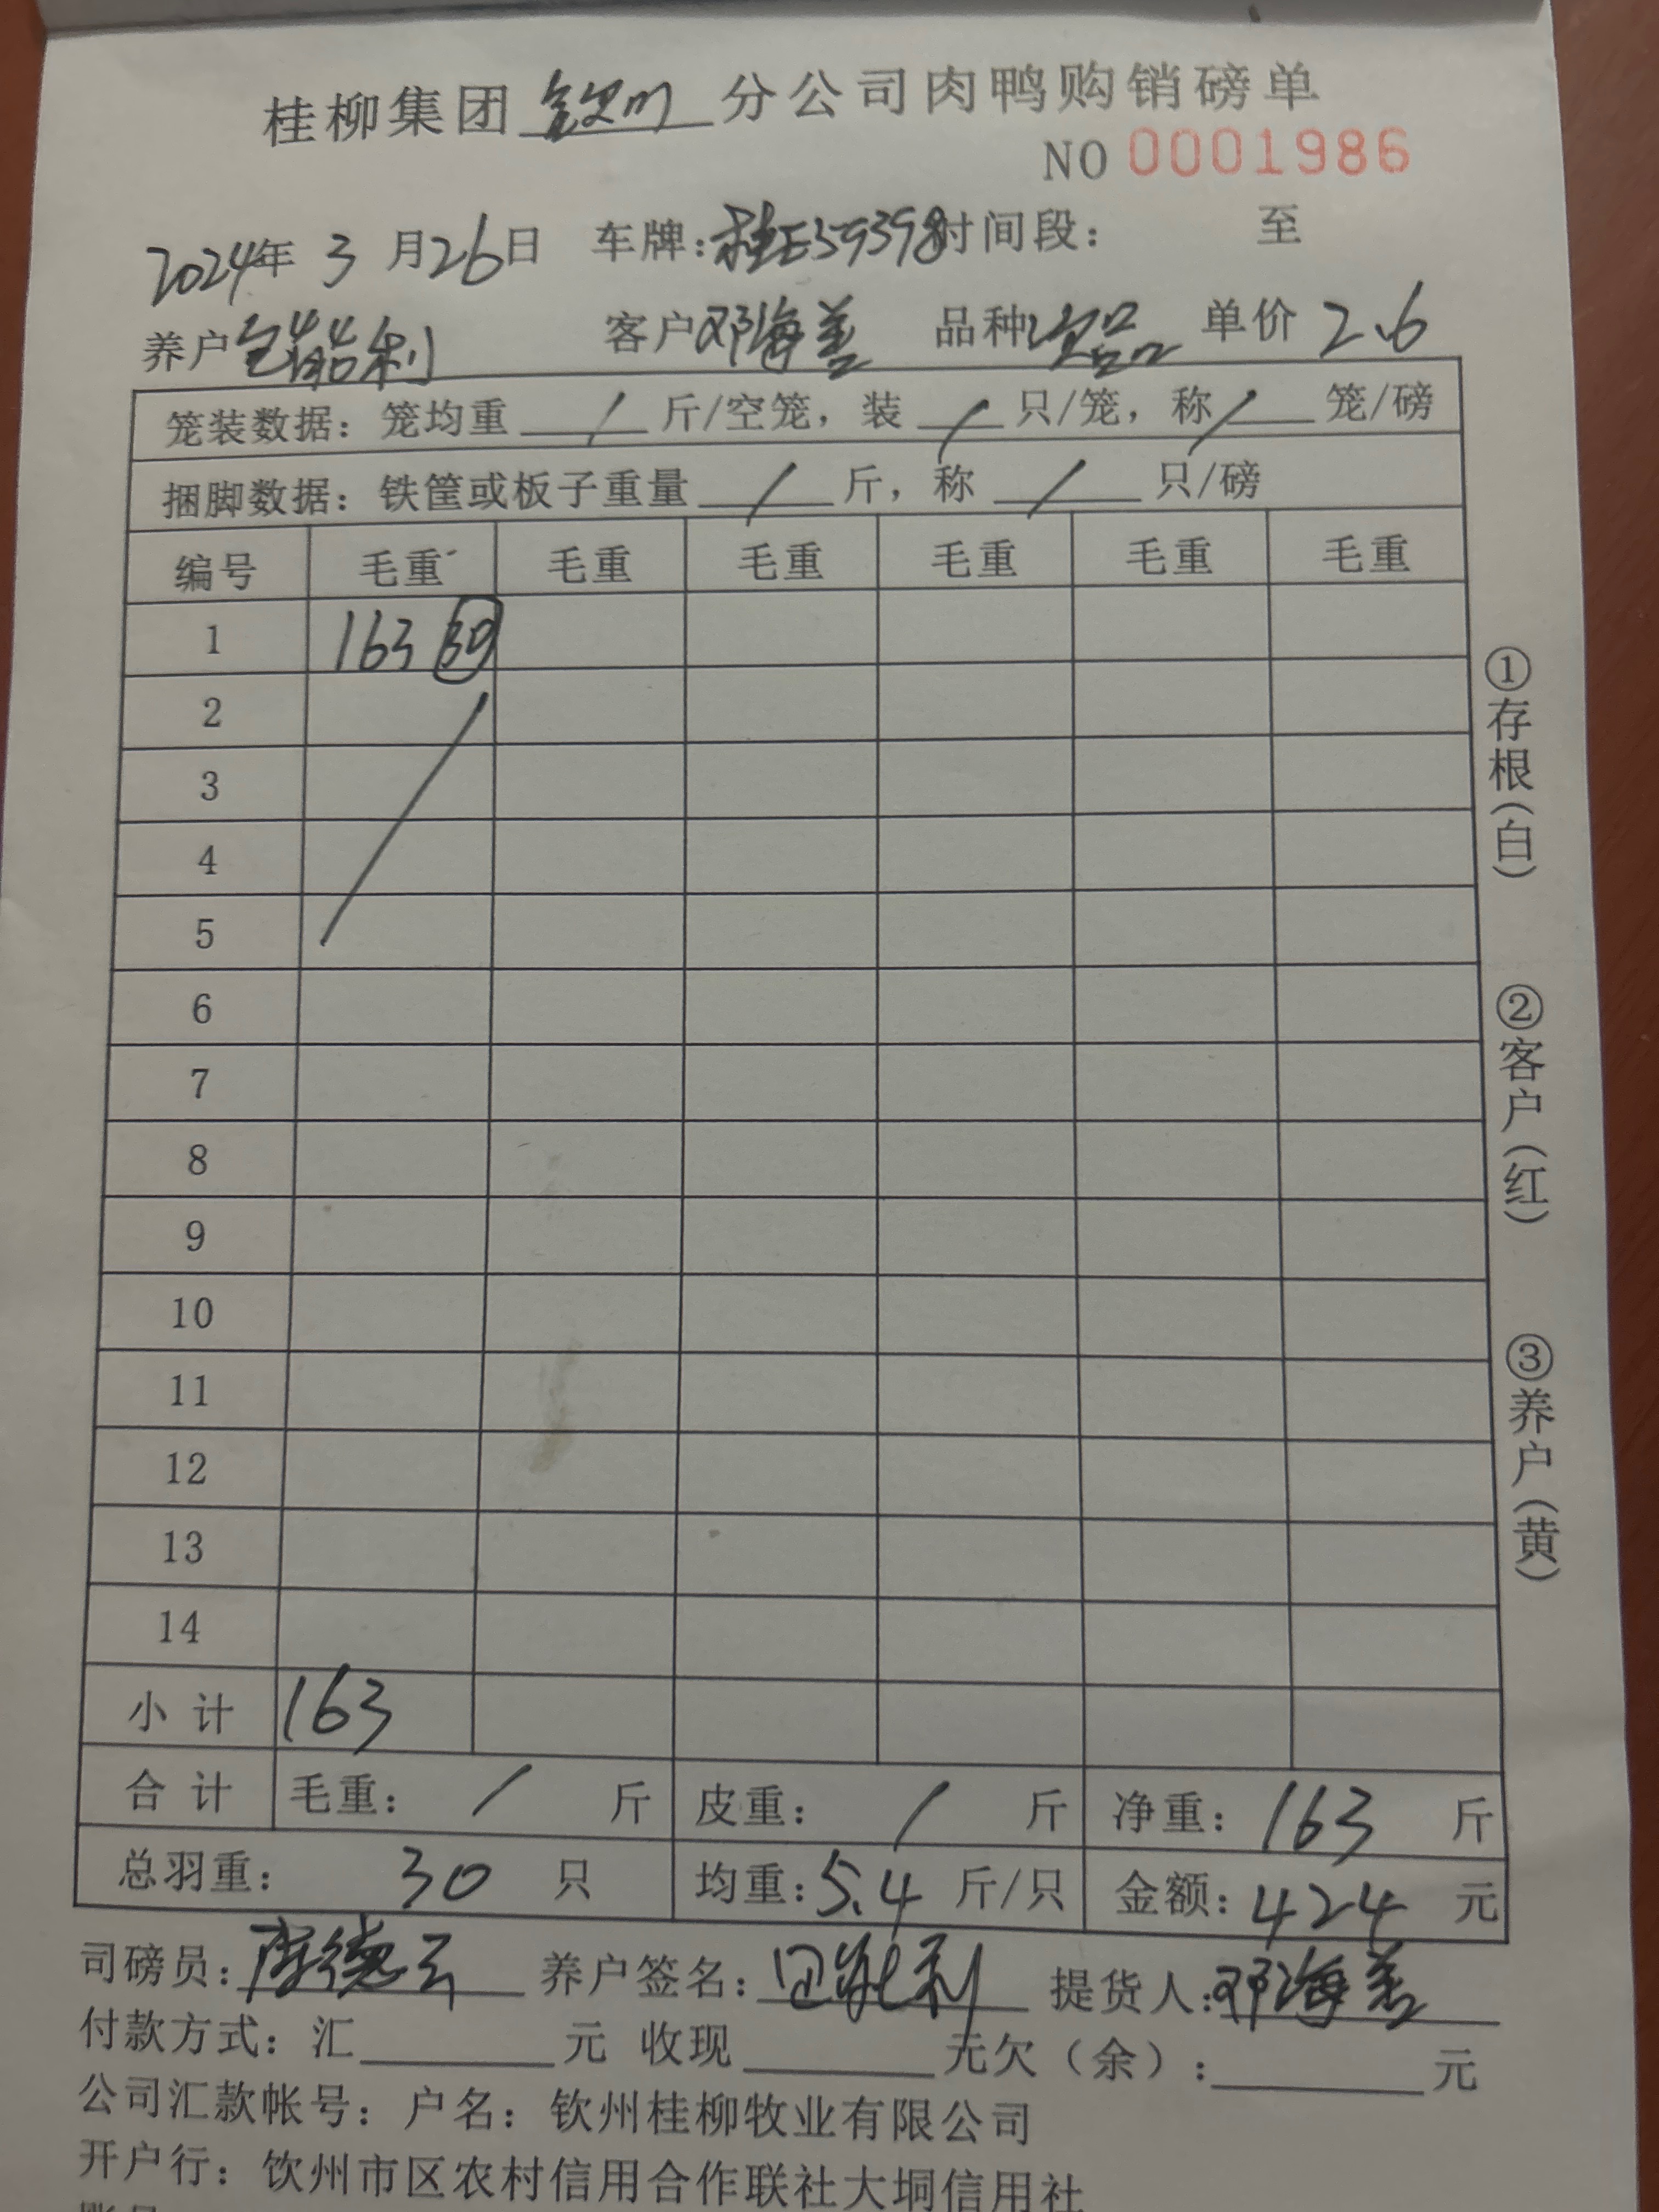 桂柳集团 钦州 分公司肉鸭购销磅单
NO 0001986
2024年 3 月 26 日 车牌：桂E59398 时间段： 至
养户 客户 邓海善 品种 次品 单价 2.6
笼装数据：笼均重 / 斤/空笼，装 / 只/笼，称 / 笼/磅
捆脚数据：铁筐或板子重量 / 斤，称 / 只/磅
编号 毛重 毛重 毛重 毛重 毛重 毛重
1 163 30
2
3
4
5
6
7
8
9
10
11
12
13
14
小计 163
合计 毛重： / 斤 皮重： / 斤 净重：163 斤
总羽重： 30 只 均重：5.4 斤/只 金额：424 元
司磅员： 养户签名： 提货人：邓海善
付款方式：汇 元 收现 元欠（余）： 元
公司汇款帐号：户名：钦州桂柳牧业有限公司
开户行：钦州市区农村信用合作联社大垌信用社
①存根（白）
②客户（红）
③养户（黄）